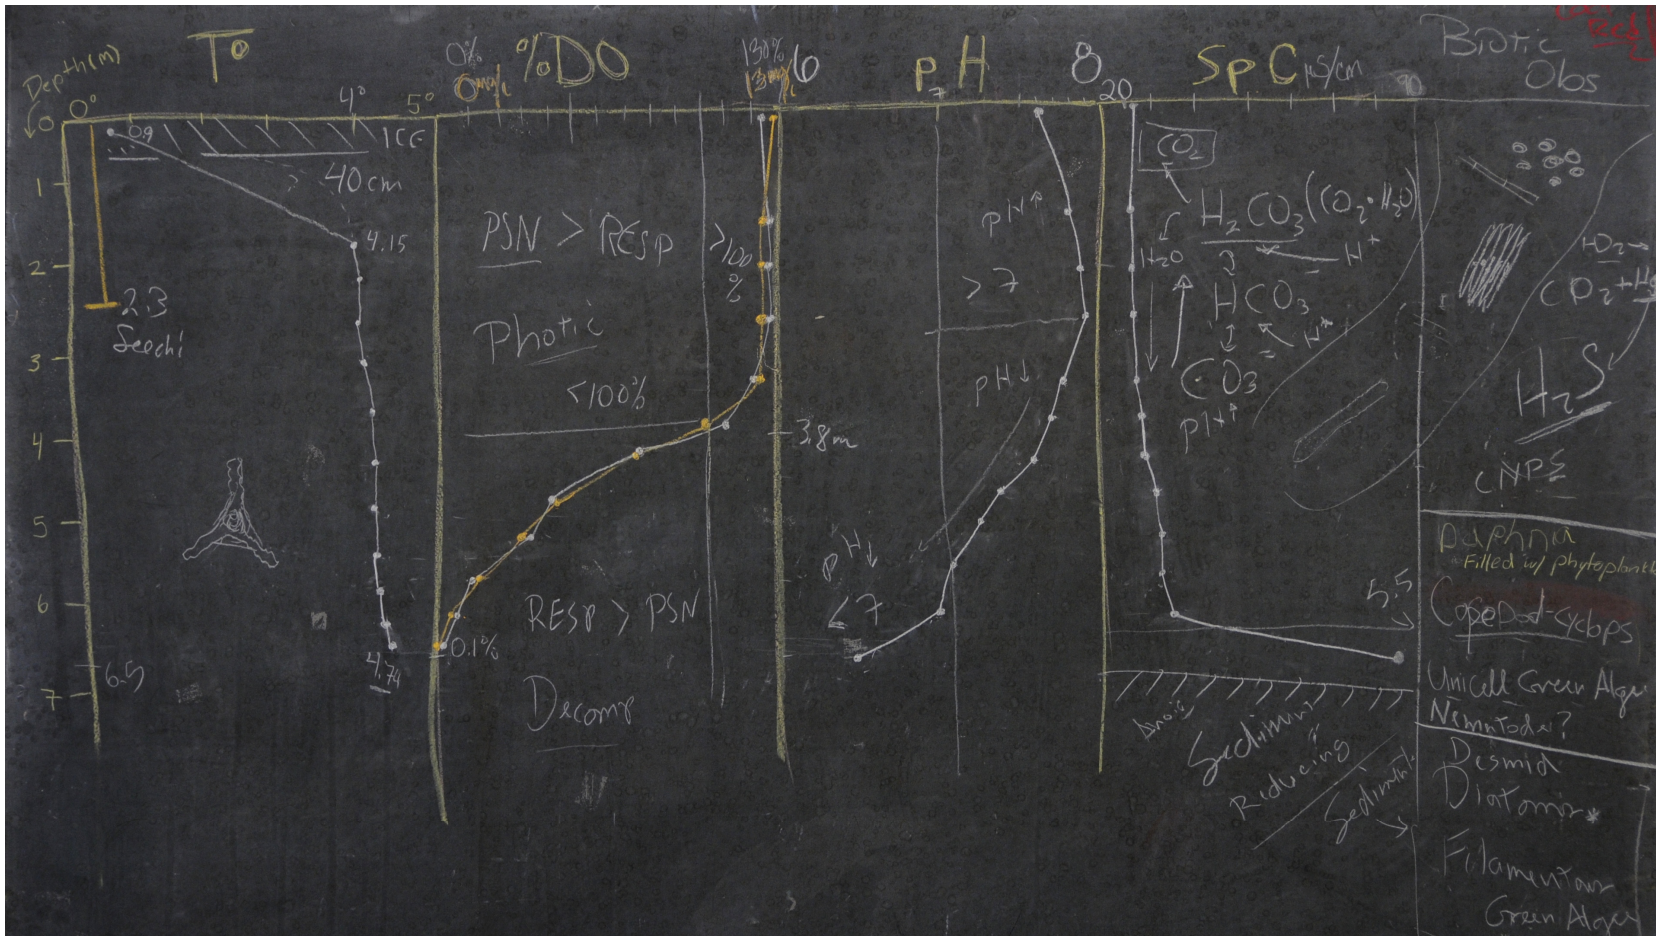 Depth(m)
T°
0%
0 mg/L
%DO
130%
13 mg/L
6
pH
7
8
20
SpC µS/cm
90
Biotic
Obs
0
0°
4°
5°
0.9
ICE
40cm
1
4.15
2
2.3
Secchi
3
4
5
6
7
6.5
4.74
PSN > RESP
>100
%
Photic
<100%
3.8m
RESP > PSN
0.1%
Decomp
pH↑
>7
pH↓
pH↓
<7
CO2
H2CO3(CO2·H2O)
H2O
H+
HCO3
H+
CO3
pH↑
5.5
Anoxic
Sediment
Reducing
Sediments
H2S
CNPS
Daphnia
Filled w/ phytoplankt
Copepod-cyclops
Unicell Green Algae
Nematodes?
Desmid
Diatoms*
Filamentous
Green Algae